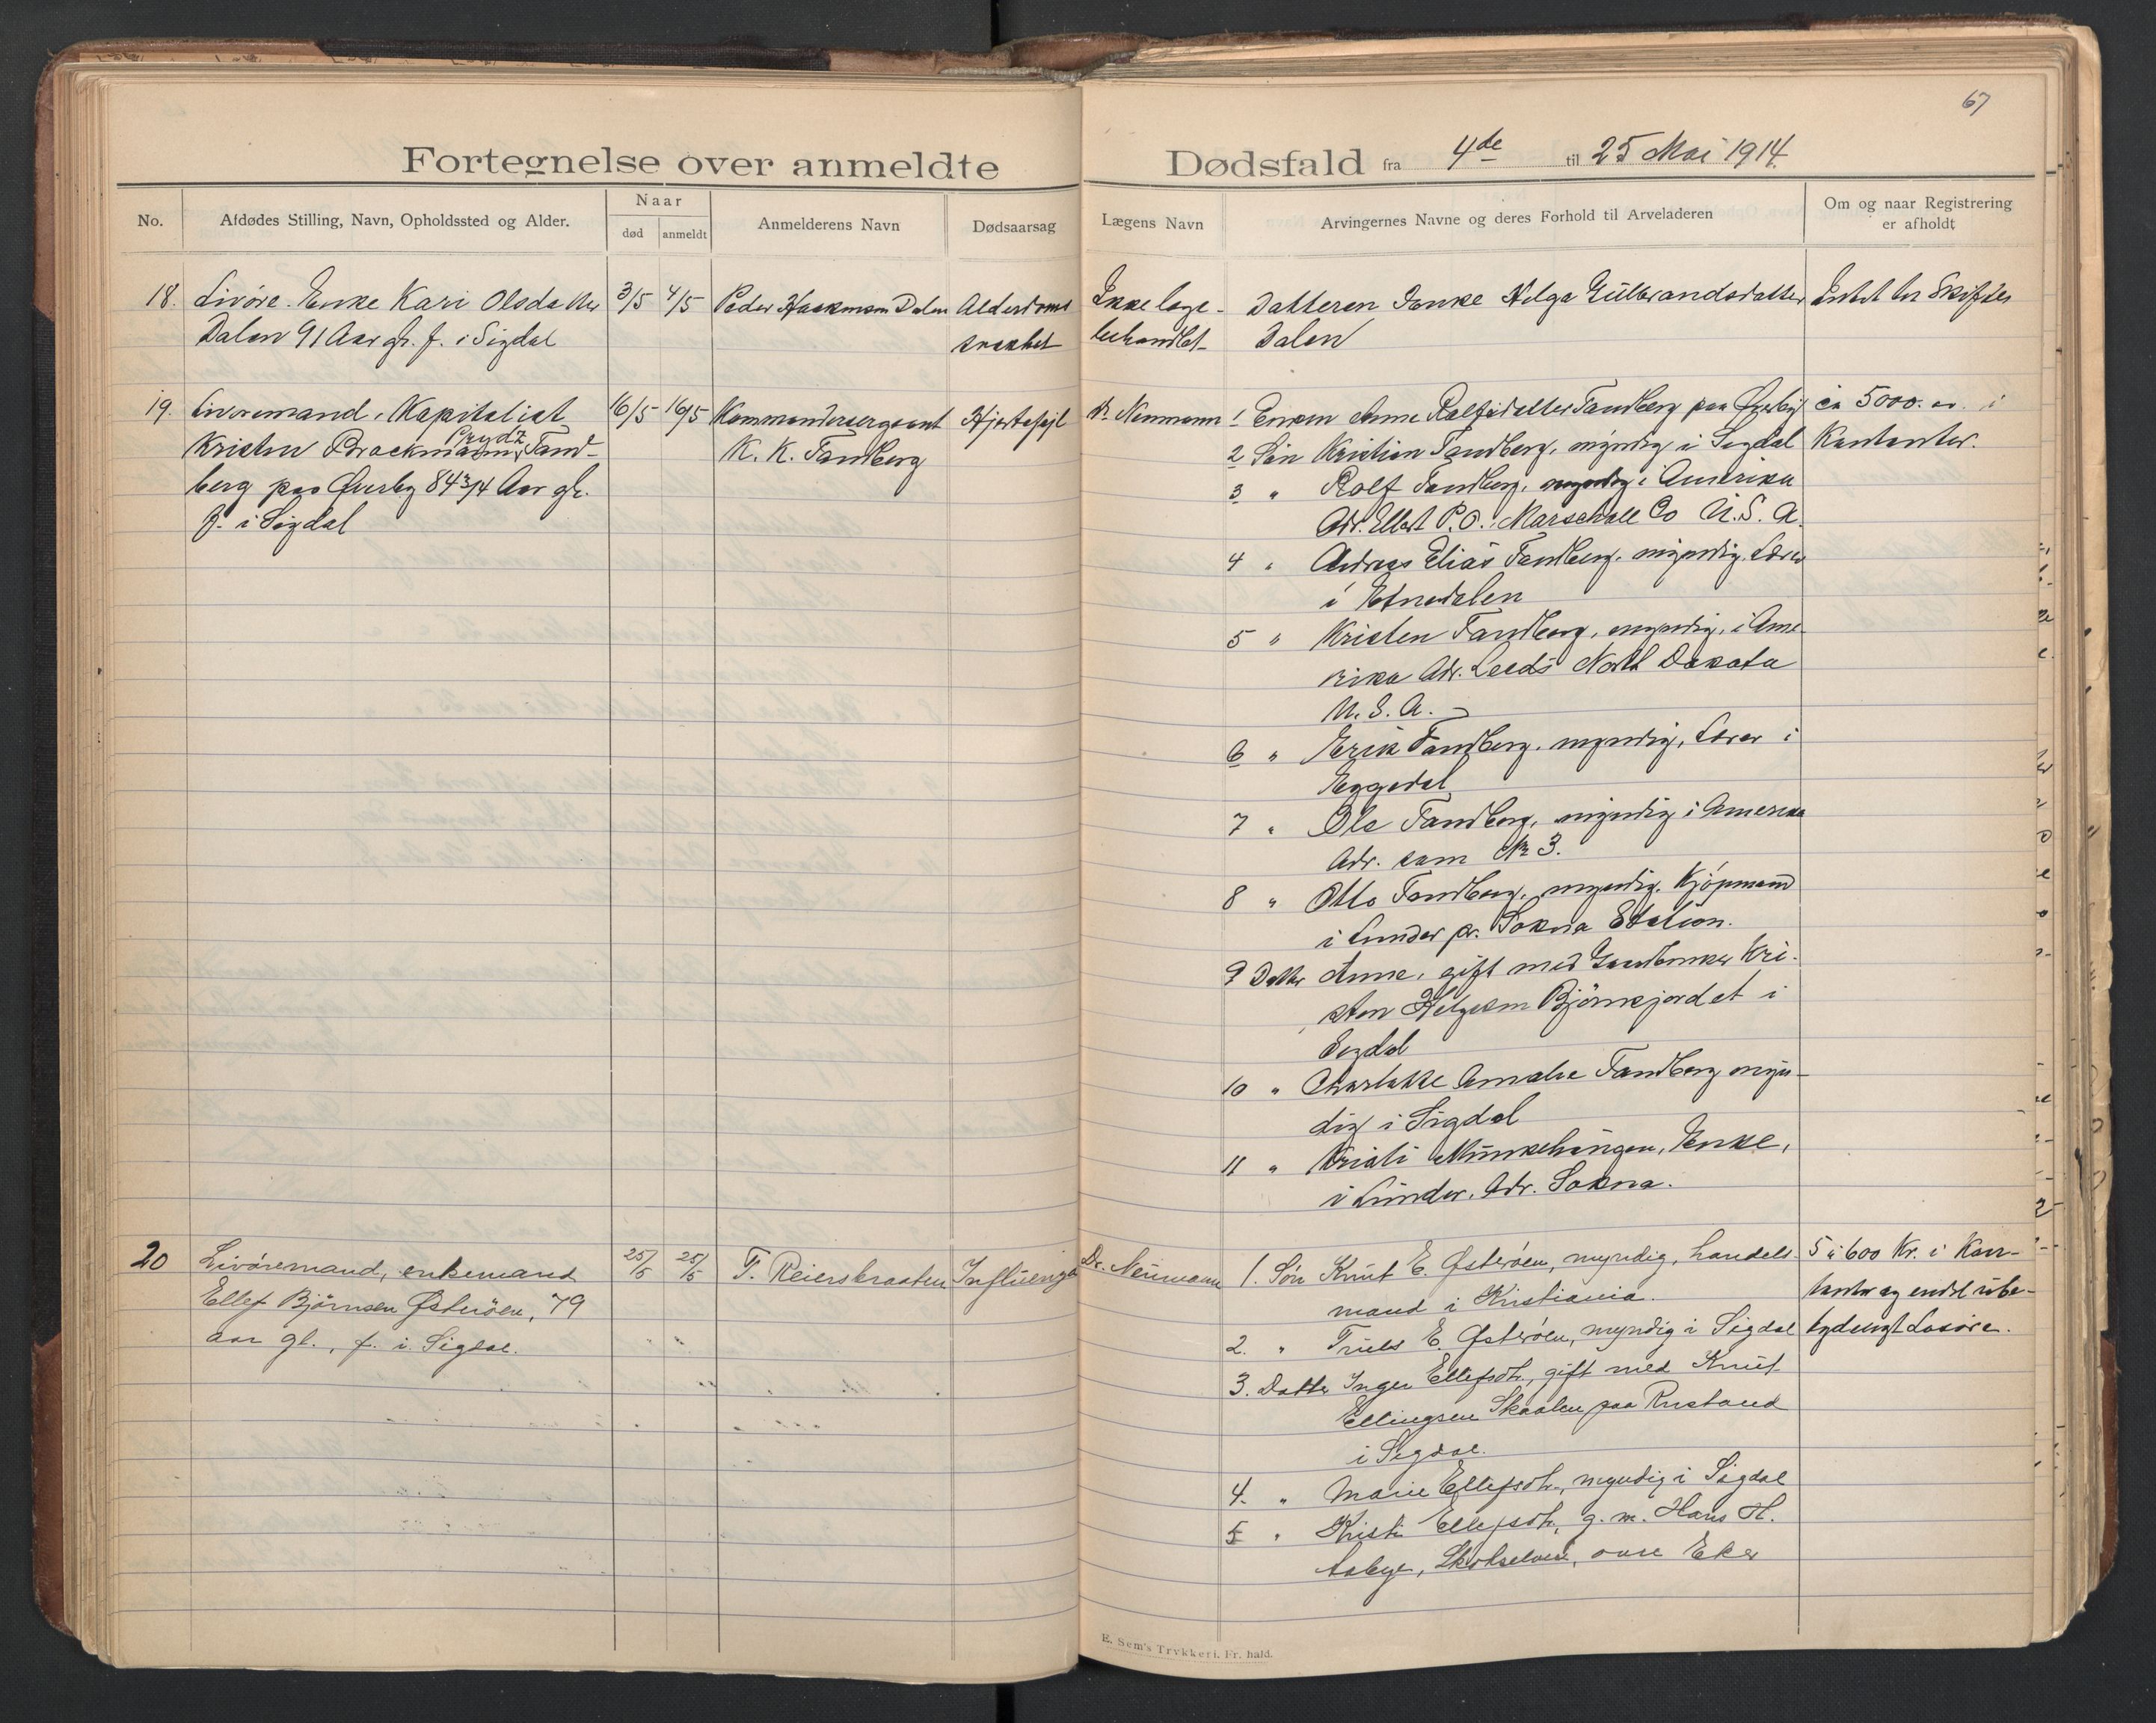 67
Fortegnelse over anmeldte Dødsfald fra 4de til 25 Mai 1914.
No. Afdødes Stilling, Navn, Opholdssted og Alder. Naar død anmeldt Anmelderens Navn Dødsaarsag Lægens Navn Arvingernes Navne og deres Forhold til Arveladeren Om og naar Registrering er afholdt
18. Livöre. Enke Kari Olsdatter 3/5 4/5 Peder Haakensen Dalen Alderdoms Ikke læge- Datteren Enke Helga Gulbrandsdatter Intet at Skifte
Dalen 91 Aar gl. f. i Sigdal svakhet behandlet Dalen
19. Livøremand, Kapitalist 16/5 16/5 Kommandersergeant Hjertefejl Dr. Neumann 1 Enken Anne Rolfsdatter Tandberg paa Øverby ca 5000. i
Kristen Brockmann Prydz Tand- K. K. Tandberg 2 Søn Kristian Tandberg, myndig i Sigdal Kontanter.
berg paa Øverby 84 3/4 Aar gl. 3 " Rolf Tandberg, myndig i Amerika
f. i Sigdal Adr. P.O. Marschall Co U.S.A.
4 " Andreas Elias Tandberg, myndig, Lærer
i Etnedalen
5 " Kristen Tandberg, myndig, i Ame-
rika Adr. Leeds North Dakota
U.S.A.
6 " Erik Tandberg, myndig, Lærer i
Eggedal
7 " Ole Tandberg, myndig i Amerika
Adr. som No 3.
8 " Otto Tandberg, myndig. Kjöpmand
i Lunder pr. Sokna Station.
9 Datter Anne, gift med Gaardbruker Kri-
sten Helgesen Björnejordet i
Sigdal
10 " Charlotte Amalie Tandberg myn-
dig i Sigdal
11 " Kristi Munkehaugen, Enke,
i Lunder. Adr. Sokna.
20 Livöremand, enkemand 25/5 25/5 T. Reierskraaten Influenza Dr. Neumann 1. Søn Knut E. Østeröen, myndig, handels- 5 à 600 Kr. i Kon-
Ellef Björnsen Østeröen, 79 mand i Kristiania. tanter og endel ube-
aar gl., f. i Sigdal. 2. " Truls E. Østeröen, myndig i Sigdal tydeligt Løsöre.
3. Datter Inger Ellefsdtr., gift med Knut
Ellingsen Skaalen paa Rustand
i Sigdal.
4. " Marie Ellefsdtr., myndig i Sigdal
5 " Kristi Ellefsdtr, g. m. Hans H.
Aabye, Skotselven, øvre Eker
E. Sem's Trykkeri. Fr. hald.